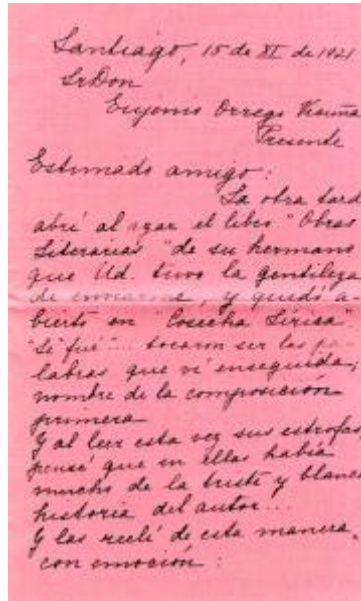 Santiago, 15 de XI de 1921
Sr Don
Eujenio Orrego Vicuña
Presente
Estimado amigo:
La otra tard
abrí al azar el libro "Obras
Literarias" de su hermano
que Ud. tuvo la gentileza
de enviarme, y quedó a-
bierto en "Cosecha Lírica"
"Se fué"... tocaron ser las pa-
labras que ví enseguida,
nombre de la composición
primera
Y al leer esta vez sus estrofas
pensé que en ellas había
mucho de la triste y blanca
historia del autor...
Y las reelí de esta manera,
con emoción: